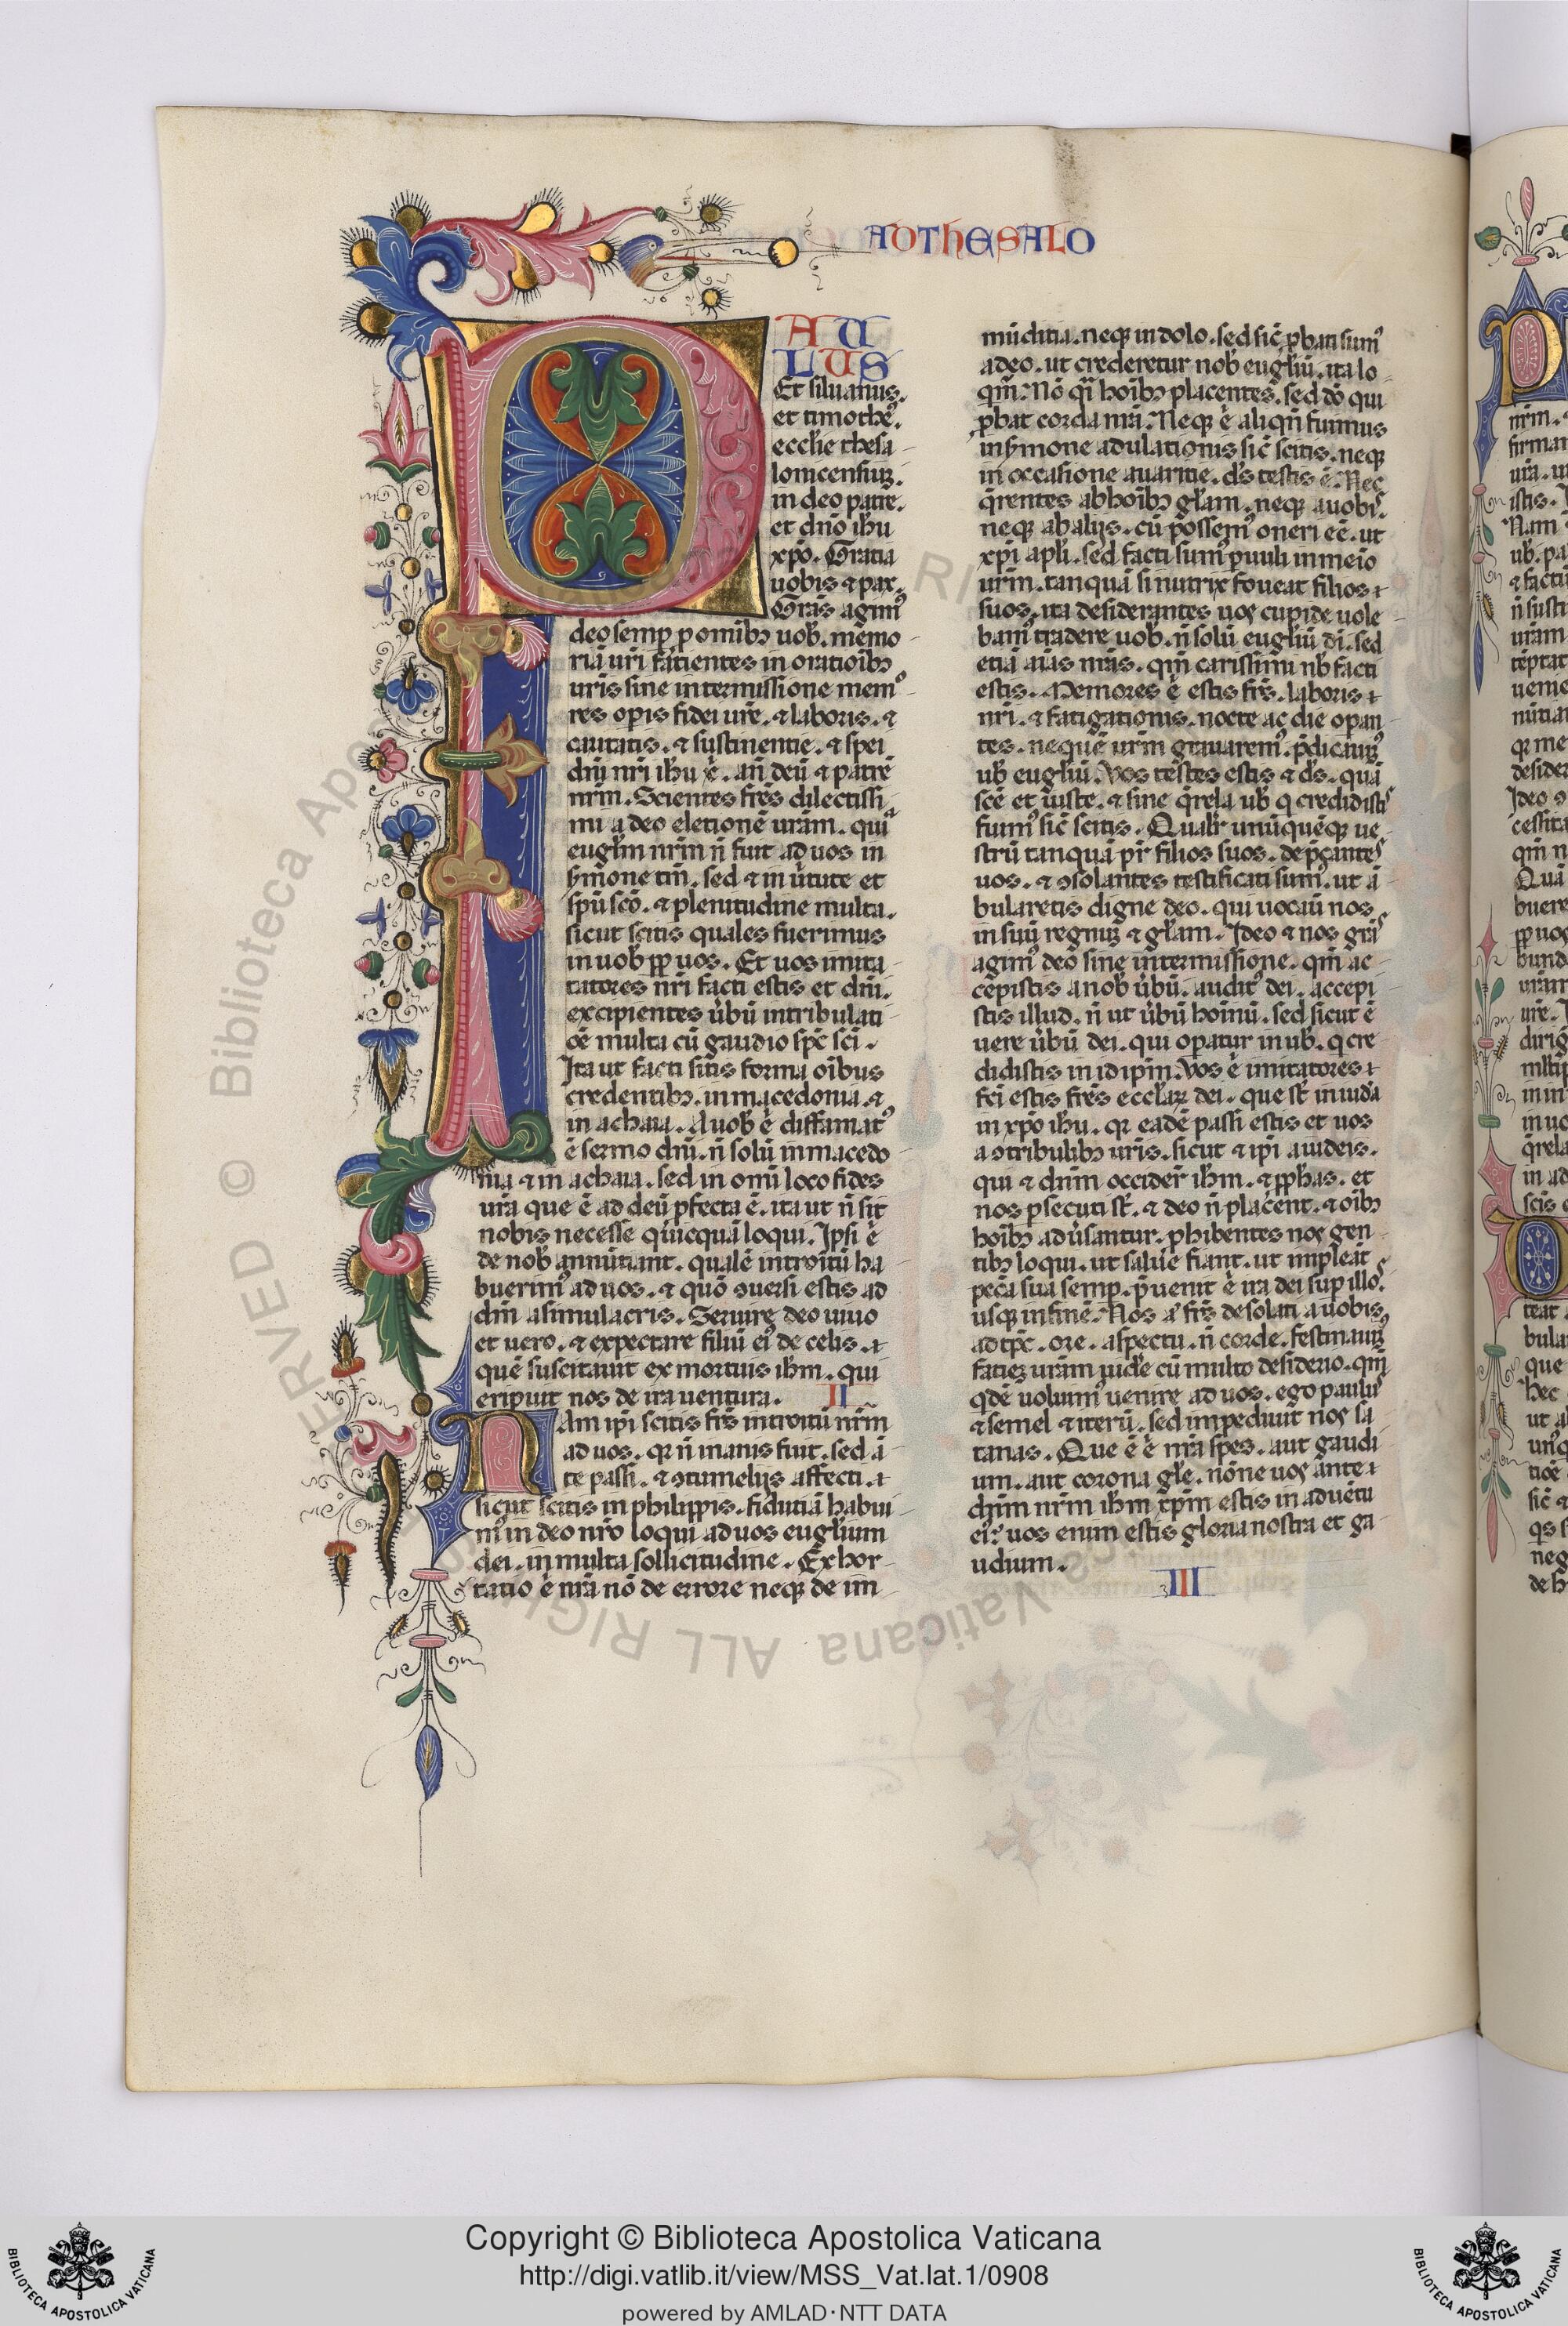 ADTHESALO
PAU
LUS
Et siluanus.
et timothe᷒.
eccl̄ie thesa
lonicensiuꝫ.
in deo patre.
et dn̄o ihū
xp̄o. Gratia
uobis ⁊ pax.
Grās agim᷒
deo semp̲ p omībꝫ uob̄. memo
riā urī facientes in oratioībꝫ
uris̄ sine intermissione mem᷒
res op̲is fidei urē. ⁊ laboris. ⁊
caritatis. ⁊ sustinentie. ⁊ spei
dn̄i nrī ihū ē. an̄ deū ⁊ patrē
nrm̄. Scientes fr̄es dilectissi
mi a deo eletionē urām. quia
eugl̄m nrm̄ n̄ fuit ad uos in
s̄mone tm̄. sed ⁊ in ūtute et
sp̄u sc̄o. ⁊ plenitudine multa.
sicut scitis quales fuerimus
in uob̄ ꝓp̲ uos. Et uos imita
tatores nrī facti estis et dn̄i.
excipientes ūbū intribulati
ōe multa cū gaudio sp̄c sc̄i.
Ita ut facti sitis forma oībus
credentibꝫ. in macedonia. ⁊
in achaia. A uob̄ ē diffamat᷒
ē sermo dn̄i. n̄ solū in macedo
nia ⁊ in achaia. sed in omī loco fides
urā que ē ad deū pfecta ē. ita ut n̄ sit
nobis necesse quicquā loqui. Ipsi ē
de nob̄ annūtiant. qualē introitū ha
buerim᷒ ad uos. ⁊ quō ꝯuersi estis ad
dm̄ asimulacris. Seruire deo uiuo
et uero. ⁊ expectare filiū ei᷒ de celis.
quē suscitauit ex mortuis ihm̄. qui
eripuit nos de ira uentura. II
Nam ip̄i scitis fr̄s introitū nrm̄
ad uos. qr n̄ inanis fuit. sed ā
te passi. ⁊ ꝯtumelijs affecti.
sicut scitis in philippis. fidutiā habui
m᷒ in deo nrō loqui ad uos eugl̄ium
dei. in multa sollicitudine. Exhor
tatio ē nrā nō de errore neqꝫ de im
mūditia. neqꝫ in dolo. sed sic̄ ꝓbati sum᷒
a deo. ut crederetur nob̄ eugl̄iū. ita lo
qm̄. Nō qi̅ hoībꝫ placentes. sed dō qui
ꝓbat corda nrā. Neqꝫ ē aliqn̄ fuimus
in s̄mone adulationis sic̄ scitis. neqꝫ
in occasione auaritie. ds̄ testis ē. Nec
q̄rentes ab hoībꝫ gl̄am. neqꝫ a uobis.
neqꝫ ab alijs. cū possem᷒ oneri eē. ut
xp̄i apl̄i. sed facti sum᷒ puuli in meio
urm̄. tanquā si nutrix foueat filios
suos. ita desiderantes uos cupide uole
bam᷒ tradere uob̄. n̄ solū eugl̄iū di̅. sed
etiā aīas nrās. qm̄ carissimi nb̄ facti
estis. Memores ē estis fr̄s. laboris
nrī. ⁊ fatigationis. nocte ac die op̲an
tes. ne quē urm̄ grauarem᷒. p̄dicauiꝫ
ub̄ eugl̄iū. Vos testes estis ⁊ ds̄. quā
sc̄e et iuste. ⁊ sine q̄rela ub̄ q credidistis
fuim᷒ sic̄ scitis. Qualr̄ unūquēqꝫ ue
strū tanquā pr̄ filios suos. dep̄cantes
uos. ⁊ ꝯsolantes testificati sum᷒. ut ā
bularetis digne deo. qui uocauī nos
in suū regnuꝫ ⁊ gl̄am. Ideo ⁊ nos grās
agim᷒ deo sine intermissione. qm̄ ac
cepistis a nob̄ ūbū. audit᷒ dei. accepi
stis illud. n̄ ut ūbū hoīnū. sed sicut ē
uere ūbū dei. qui op̲atur in ub̄. q cre
didistis in id ipm̄. Vos ē imitatores
fc̄i estis fr̄es eccl̄aꝝ dei. que st̄ in iudā
in xp̄o ihū. qr eadē passi estis et uos
a ꝯtribulibꝫ uris̄. sicut ⁊ ip̄i a iudeis.
qui ⁊ dnm̄ occider̄ ihm̄. ⁊ ꝓphas. et
nos p̲secuti st̄. ⁊ deo n̄ placent. ⁊ oībꝫ
hoībꝫ adūsantur. ꝓhibentes nos gen
tibꝫ loqui. ut salue fiant. ut impleāt
pec̄a sua semp̲. p̄uenit ē ira dei sup̲ illos.
usqꝫ in finē. Nos a᷒ fr̄s desolati a uobis
ad tp̄c. ore. aspectu. n̄ corde. festinauiꝫ
facieꝫ urām uide᷒ cū multo desiderio. qm̄
qde᷒ uoluim᷒ uenire ad uos. ego paulus
⁊ semel ⁊ iterū. sed impediuit nos sa
tanas. Que ē ē nrā spes. aut gaudi
um. aut corona gl̄e. nōne uos ante
dnm̄ nrm̄ ihm̄ xp̄m estis in aduētu
ei᷒. uos enim estis gloria nostra et ga
udium.
III
Copyright © Biblioteca Apostolica Vaticana
http://digi.vatlib.it/view/MSS_Vat.lat.1/0908
powered by AMLAD·NTT DATA
BIBLIOTECA APOSTOLICA VATICANA
BIBLIOTECA APOSTOLICA VATICANA